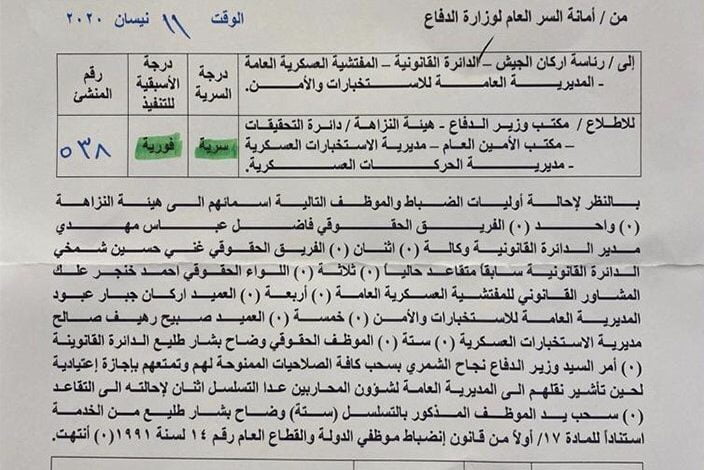 من / أمانة السر العام لوزارة الدفاع الوقت ١١ نيسان ٢٠٢٠
إلى / رئاسة اركان الجيش – الدائرة القانونية – المفتشية العسكرية العامة
– المديرية العامة للاستخبارات والأمن.
درجة السرية
درجة الأسبقية للتنفيذ
رقم المنشئ
للاطلاع / مكتب وزير الدفاع – هيئة النزاهة / دائرة التحقيقات
– مكتب الأمين العام – مديرية الاستخبارات العسكرية
– مديرية الحركات العسكرية.
سرية
فورية
٥٣٨
بالنظر لإحالة أوليات الضباط والموظف التالية اسمائهم الى هيئة النزاهة
(٠) واحد (٠) الفريق الحقوقي فاضل عباس مهدي
مدير الدائرة القانونية وكالة (٠) اثنان (٠) الفريق الحقوقي غني حسين شمخي
الدائرة القانونية سابقاً متقاعد حالياً (٠) ثلاثة (٠) اللواء الحقوقي احمد خنجر علك
المشاور القانوني للمفتشية العسكرية العامة (٠) أربعة (٠) العميد اركان جبار عبود
المديرية العامة للاستخبارات والأمن (٠) خمسة (٠) العميد صبيح رهيف صالح
مديرية الاستخبارات العسكرية (٠) ستة (٠) الموظف الحقوقي وضاح بشار طليع الدائرة القانوينة
(٠) أمر السيد وزير الدفاع نجاح الشمري بسحب كافة الصلاحيات الممنوحة لهم وتمتعهم بإجازة إعتيادية
لحين تأشير نقلهم الى المديرية العامة لشؤون المحاربين عدا التسلسل اثنان لإحالته الى التقاعد
(٠) سحب يد الموظف المذكور بالتسلسل (ستة) وضاح بشار طليع من الخدمة
استناداً للمادة ١٧/ أولاً من قانون إنضباط موظفي الدولة والقطاع العام رقم ١٤ لسنة ١٩٩١(٠) أنتهت.